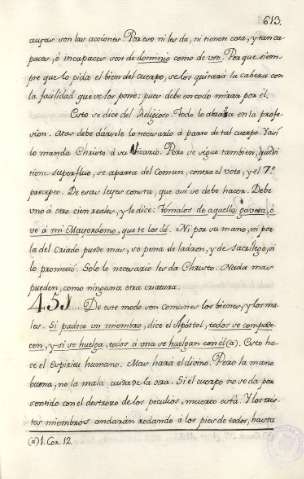 613.
cuyas son las acciones. Por eso ni les da, ni tienen cosa, y tan ca
paces, ó incapaces son de dominio como de uso. Porque siem
pre que lo pida el bien del cuerpo, se los quitará la cabeza con
la facilidad que se los pone: pues debe en todo mirar por el.
Esto se dice del Religioso. Todo lo en la profe
sion. Mas debe dársele lo necesario á parte de tal cuerpo. Y así
lo manda Christo á su Vicario. Pero se sigue tambien, que
tiene superfluo, se aparta del Comun, contra el voto, y el 7.º
precepto. De estas leyes consta, que así se debe hacer. Debe
uno á otro cien reales, y le dice: Tómalos de aquella gaveta, ó
ve á mi Mayordomo, que te los dé. Ni por su mano, ni por
la del Criado puede mas, so pena de ladron, y de sacrilego, si
lo prometió. Solo lo necesario les da Christo. Nada mas
pueden, como ninguna otra criatura.
451 De este modo son comunes los bienes, y los ma
les. Si padece un miembro, dice el Apóstol, todos se compade
cen, y si se huelga, todos á una se huelgan con él (a). Esto ha
ce el Espíritu humano. Mas hará el divino. Pero la mano
buena, no la mala cuida de la otra. Si el cuerpo no se da por
sentido con el destrozo de los pecados, muerto está. Y los tris
tes miembros andarán rodando á los pies de todos, hasta
(a) 1. Cor. 12.